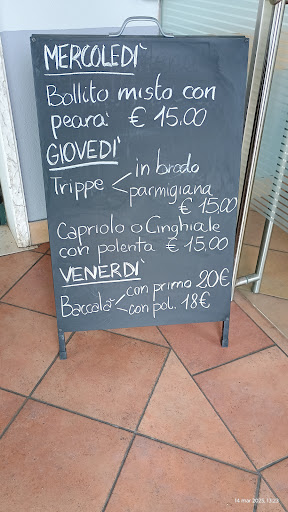 MERCOLEDÌ
Bollito misto con
pearà € 15.00
GIOVEDÌ
Trippe < in brodo
parmigiana
€ 15,00
Capriolo o Cinghiale
con polenta € 15.00
VENERDÌ
Baccalà < con primo 20€
con pol. 18€
14 mar 2025, 13:23